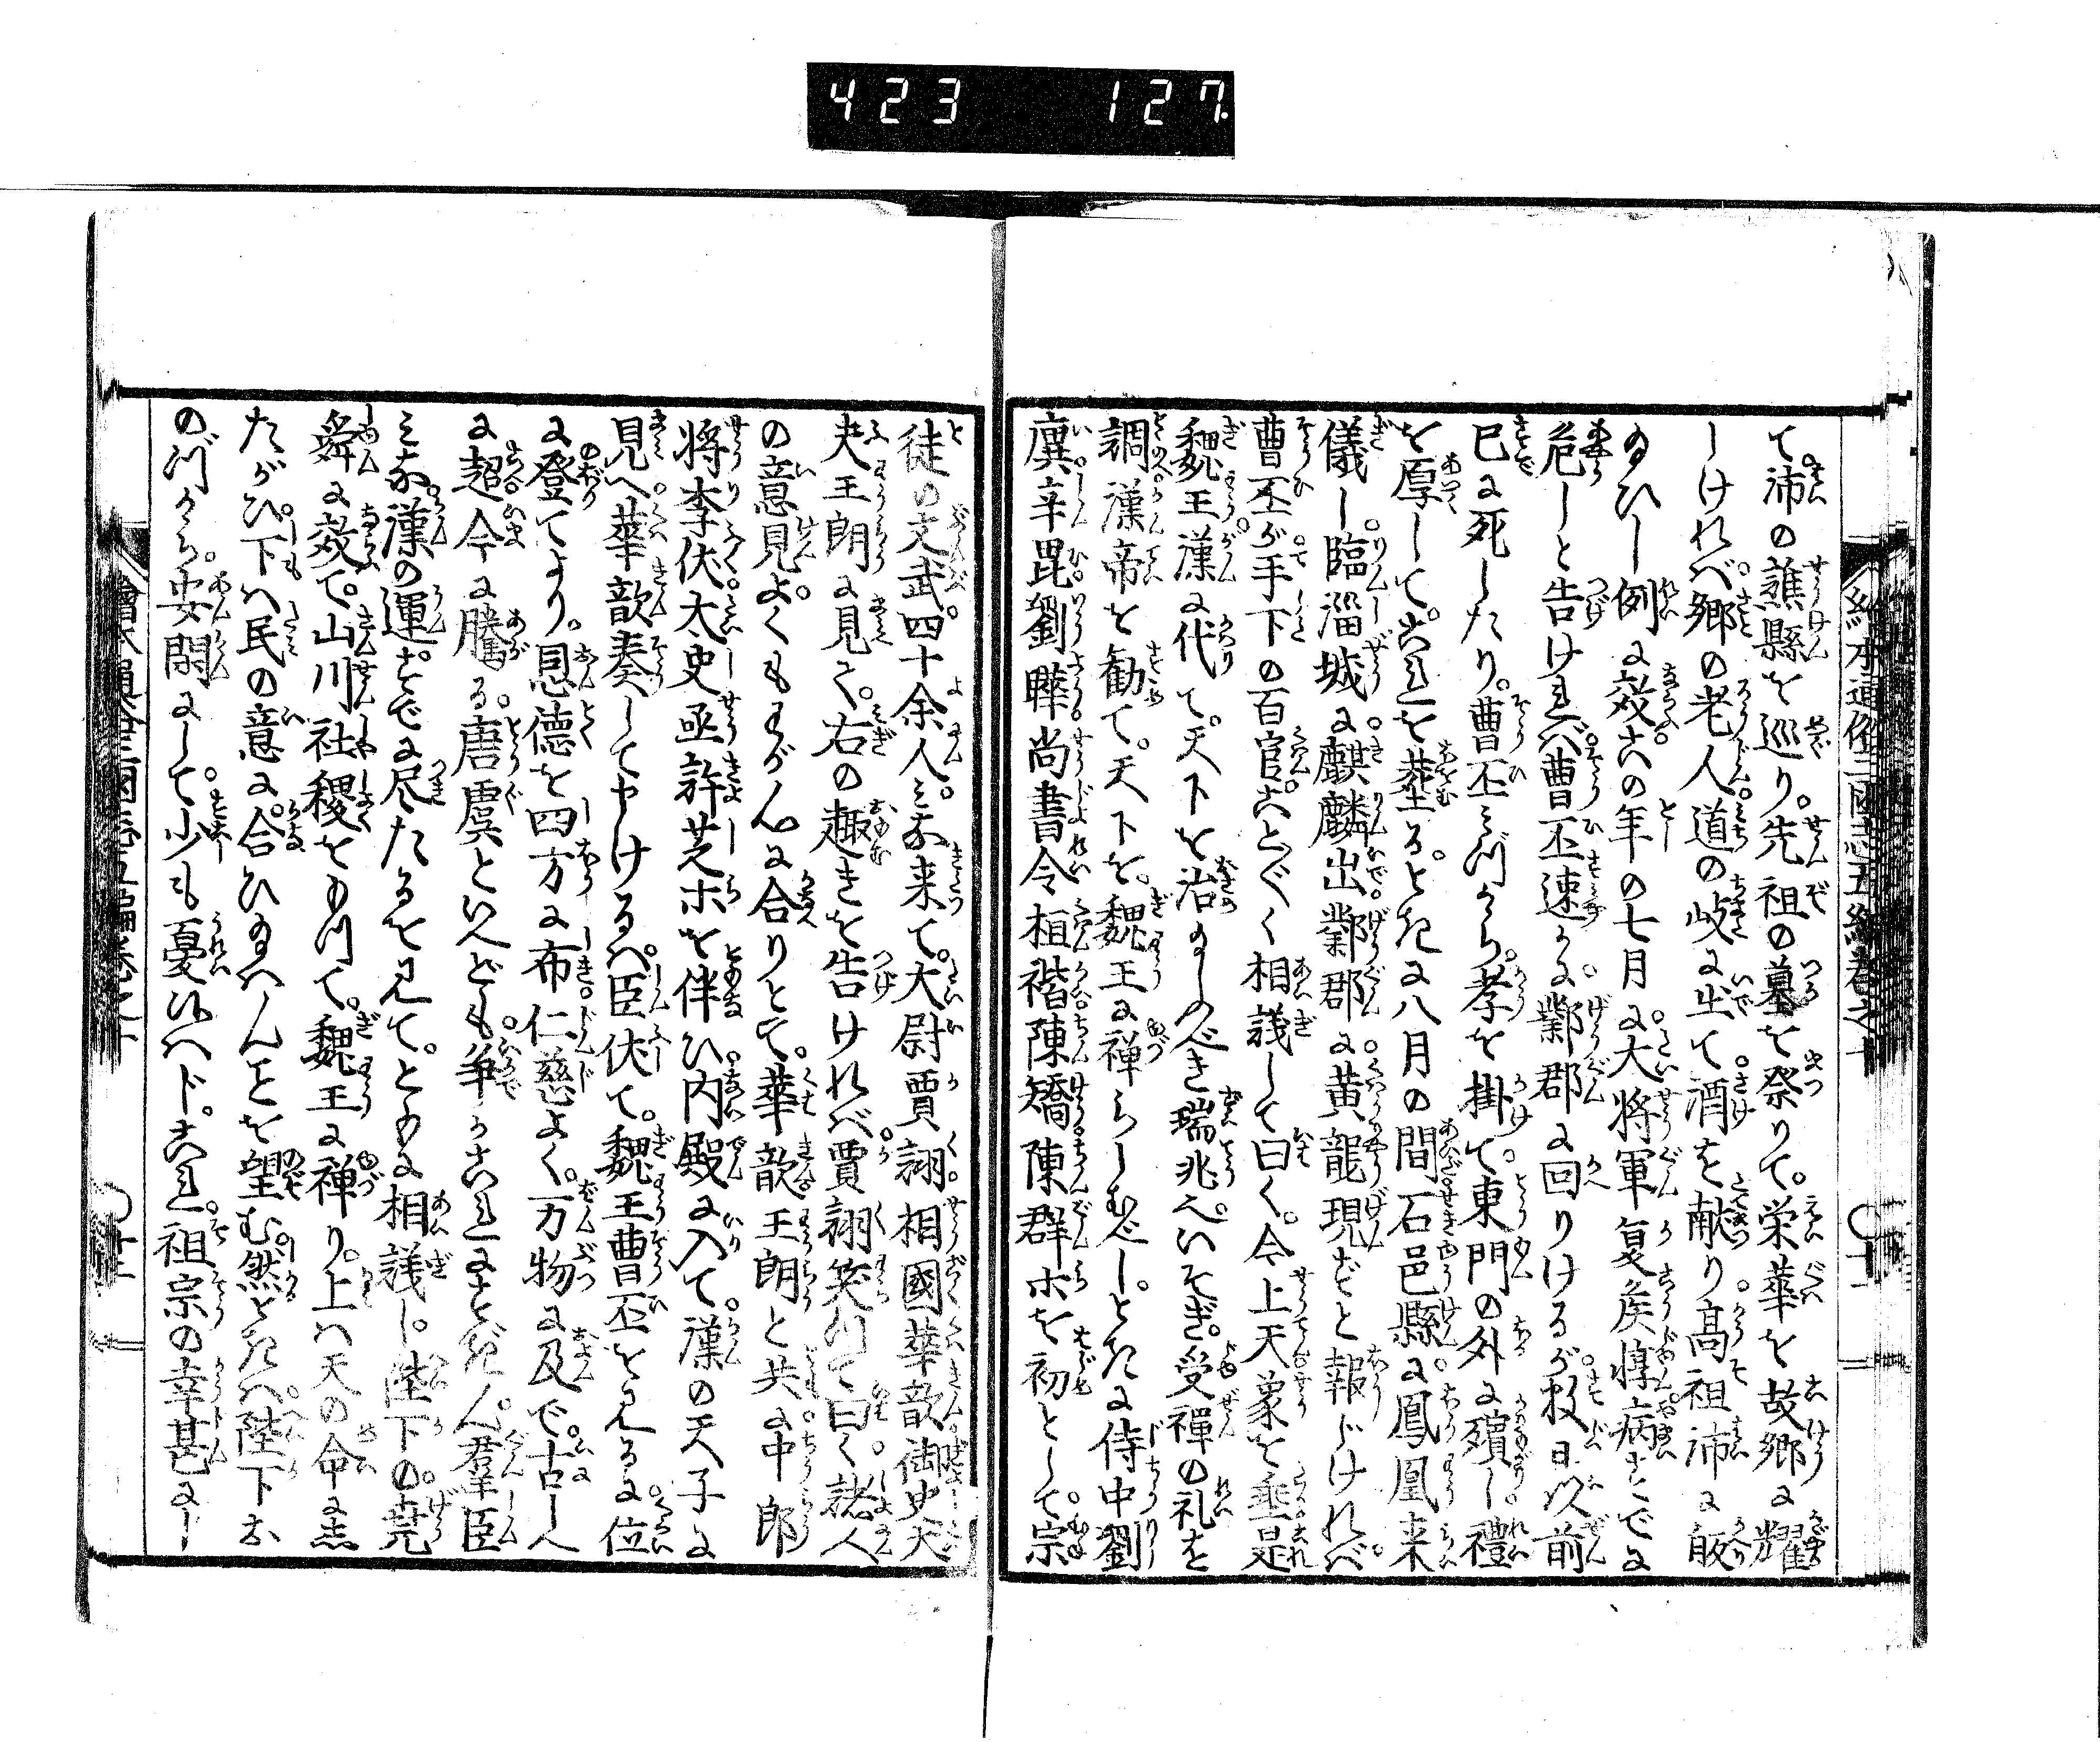 423 127
繪本通俗三國志五編卷之十
て。沛の譙縣を巡り。先祖の墓を祭りて。栄華を故郷に耀
しけれバ。郷の老人道の岐に出て。酒を献り。高祖沛に皈
ゐひし例に效ふ。此年の七月に。大将軍夏矦惇病すでに
危しと告けれバ。曹丕速かに。鄴郡に回りけるが。数日以前
已に死したり。曹丕みづから。孝を掛て。東門の外に殯し。禮
を厚して。これを葬る。ときに八月の間。石邑縣に。鳳凰来
儀し。臨淄城に。麒麟出。鄴郡に。黄龍現ずと報じけれバ。
曹丕が手下の百官。ことごとく相議して曰く。今上天象を垂。是
魏王。漢に代て。天下を治めしめんべき瑞兆也。いそぎ。受禪の礼を
調。漢帝を勧て。天下を。魏王に禅らしむべし。ときに侍中劉
廙。辛毘。劉曄。尚書令桓楷。陳矯。陳群ホを初として。宗
徒の文武。四十余人。みな来て。大尉賈詡。相國華歆。御史大
夫王朗に見て。右の趣きを告けれバ。賈詡笑つて曰く。諸人
の意見。よくもわがんに合りとて。華歆。王朗と共に。中郎
将李伏。太史丞許芝ホを伴ひ。内殿に入て。漢の天子に
見へ。華歆奏してやけるハ。臣伏て。魏王曹丕を見るに。位
に登てより。恩徳を四方に布。仁慈よく。万物に及で。古しへ
に超。今に騰る。唐虞といへども。争かこれにすぎん。群臣
みな。漢の運すでに尽たるを見て。ともに相議し。陛下の。尭
舜に效て。山川社稷をもつて。魏王に禅り。上ハ天の命にし
たがひ。下ハ民の意に。合ひゐハんことを望む。然るときハ。陛下お
のづから。安閑にして。少も憂ひハド。これ。祖宗の幸甚にし